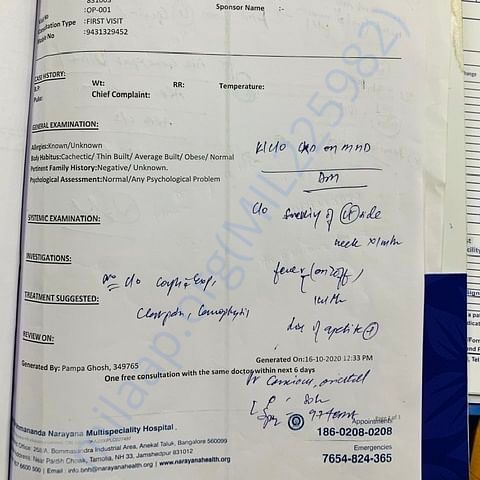 831003
:OP-001
Sponsor Name :-
Consultation Type :FIRST VISIT
Mobile No :9431329452
CASE HISTORY:
B.P: Wt: RR: Temperature:
Pulse: Chief Complaint:
GENERAL EXAMINATION:
Allergies:Known/Unknown
Body Habitus:Cachectic/ Thin Built/ Average Built/ Obese/ Normal
Pertinent Family History:Negative/ Unknown.
Psychological Assessment:Normal/Any Psychological Problem
K/c/o CKD on MHD
DM
SYSTEMIC EXAMINATION:
c/o swelling of side
neck x 1 mth
INVESTIGATIONS:
fever (on & off)
no c/o cough
TREATMENT SUGGESTED:
loss of apetite
REVIEW ON:
Generated By: Pampa Ghosh, 349765 Generated On:16-10-2020 12:33 PM
One free consultation with the same doctor within next 6 days
Pt Conscious, oriented
Page 1 of 1
Narayana Multispeciality Hospital
Office: 258/A, Bommasandra Industrial Area, Anekal Taluk, Bangalore 560099
Address: Near Pardih Chowk, Tamolia, NH 33, Jamshedpur 831012
Email : info.bnh@narayanahealth.org www.narayanahealth.org
Appointments
186-0208-0208
Emergencies
7654-824-365
milaap.org(MIL225982)